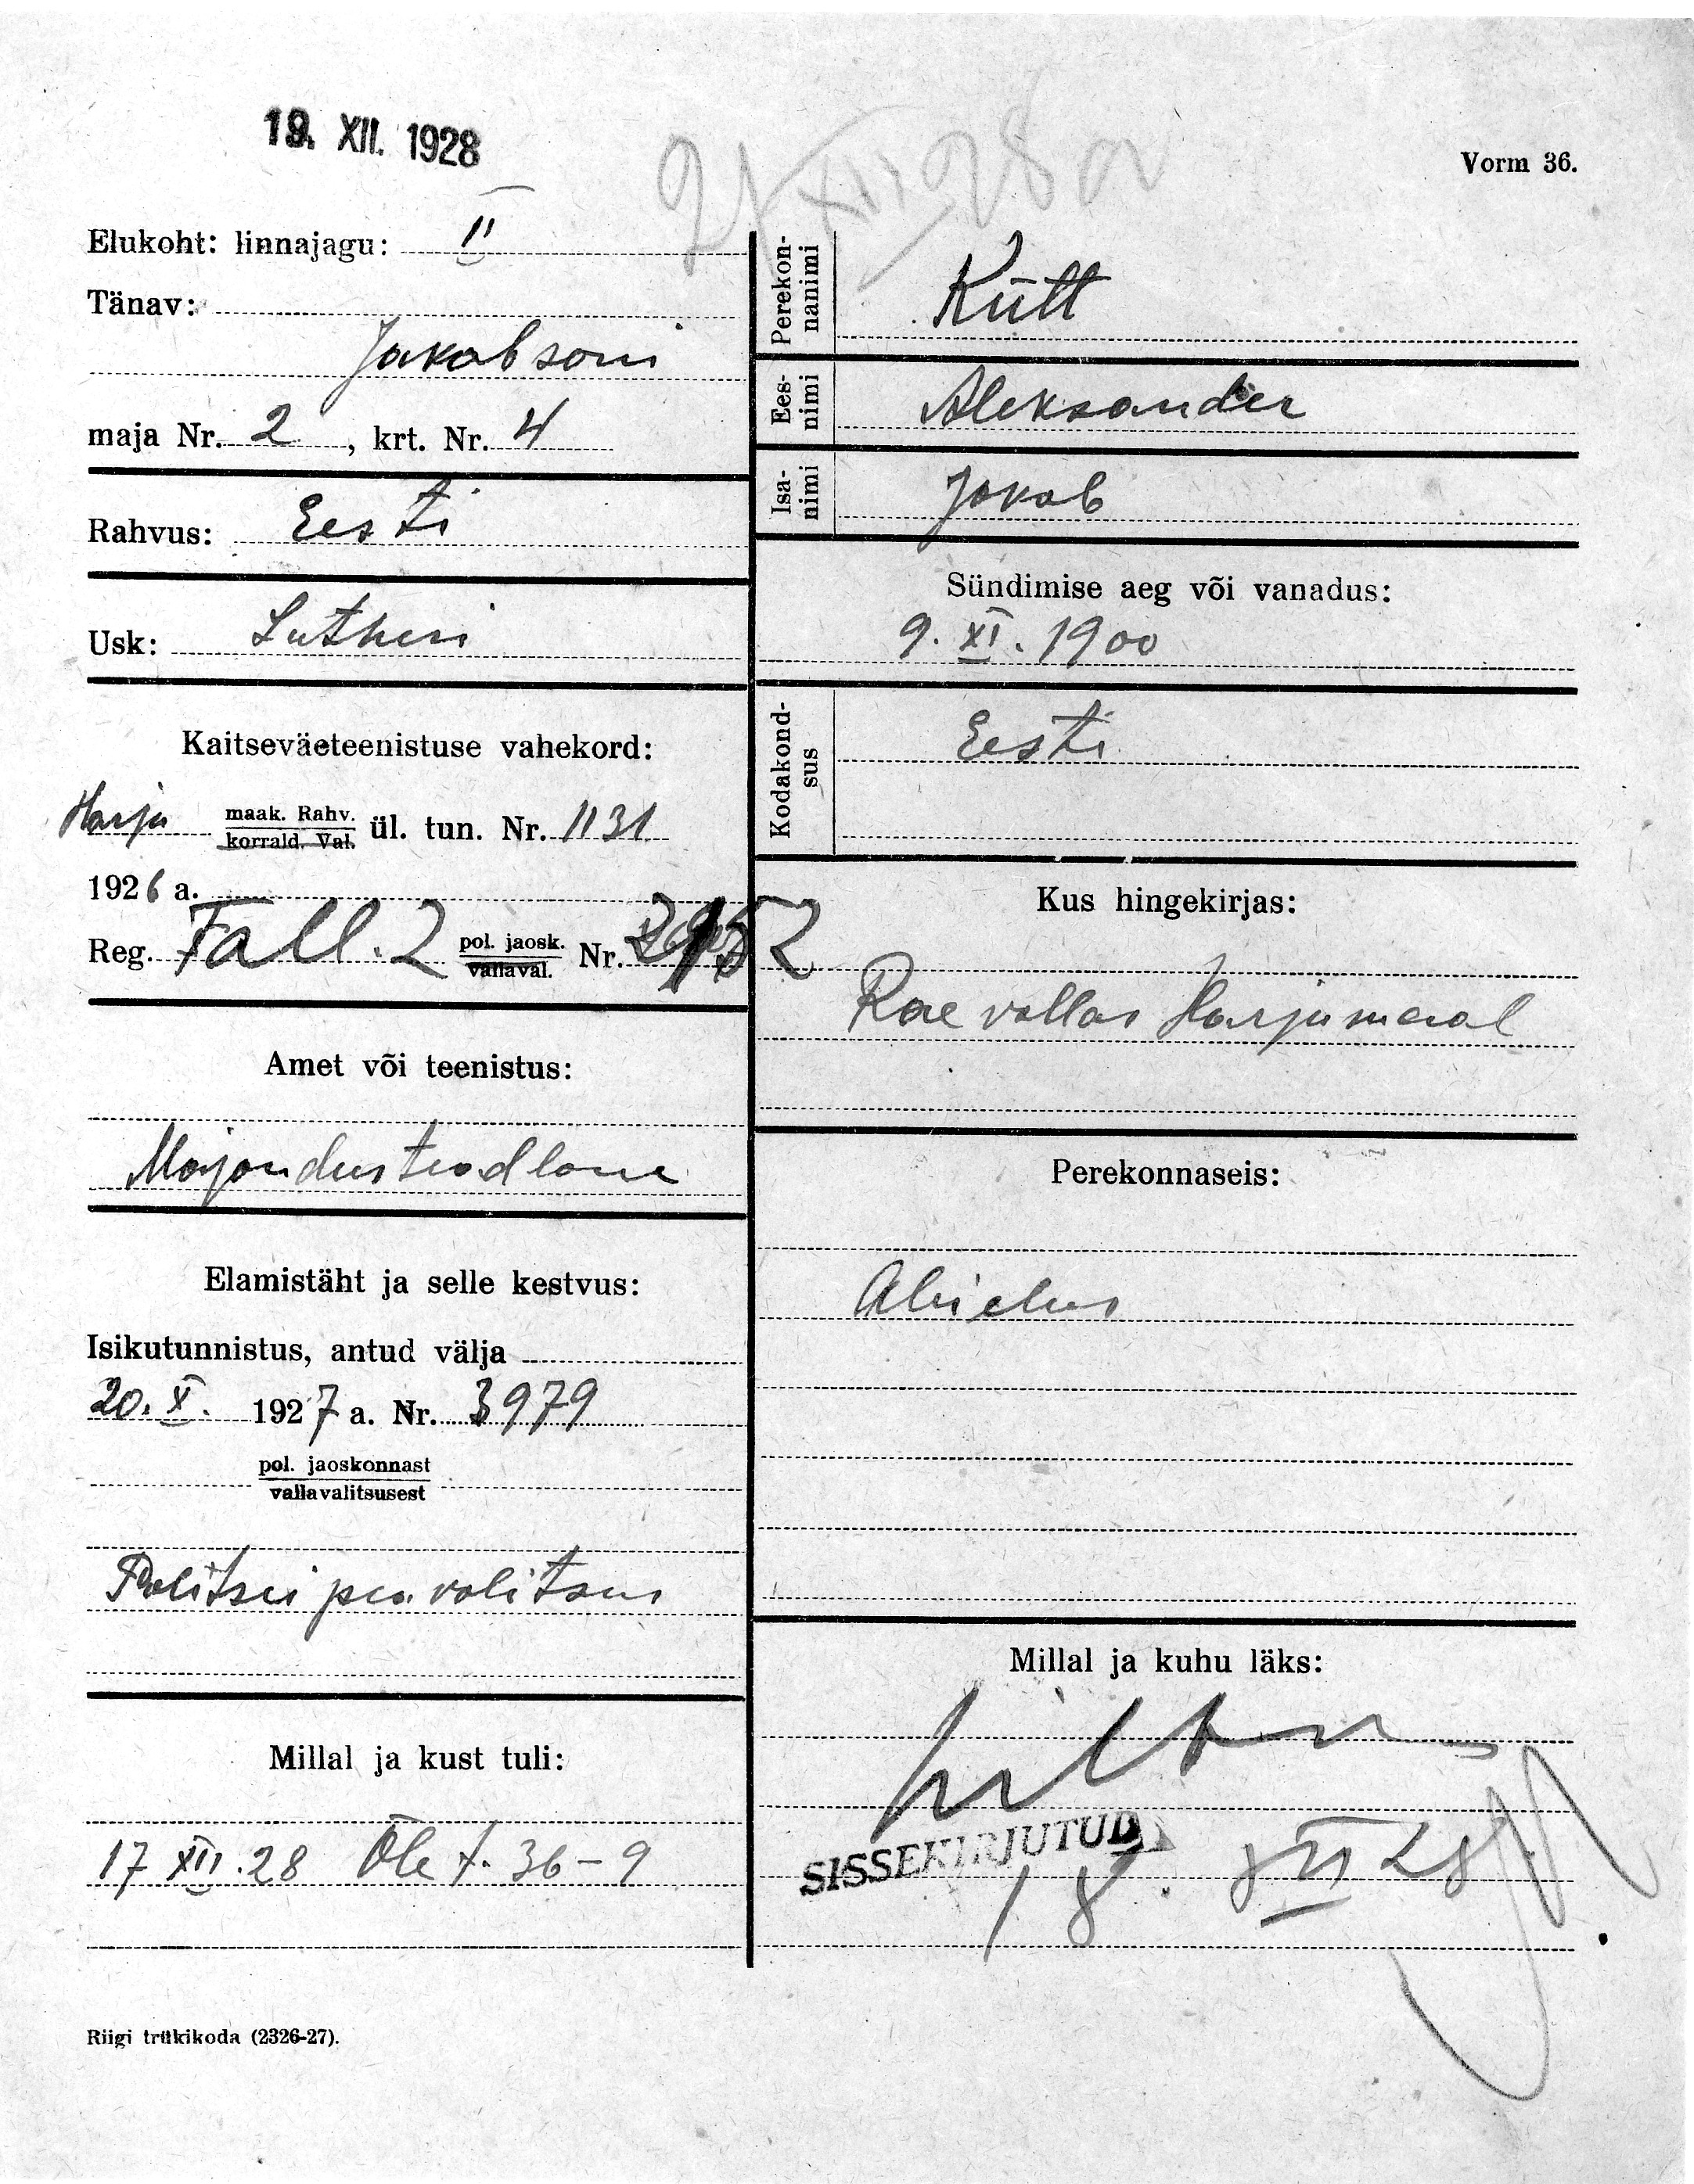 19. XII. 1928
21 XII 28 a
Vorm 36.
Elukoht: linnajagu: II
Tänav:
Jakobsoni
maja Nr. 2, krt. Nr. 4
Rahvus: Eesti
Usk: Lutheri
Kaitseväeteenistuse vahekord:
Harju maak. Rahv. korrald. Val. ül. tun. Nr. 1131
1926 a.
Reg. Tall. 2 pol. jaosk. vallaval. Nr.
Amet või teenistus:
Majandusteadlane
Elamistäht ja selle kestvus:
Isikutunnistus, antud välja
20. X. 1927 a. Nr. 3979
pol. jaoskonnast
vallavalitsusest
Politsei peavalitsus
Millal ja kust tuli:
17 XII.28 Õle t. 36-9
Riigi trükikoda (2326-27).
Perekonnanimi Kütt
Eesnimi Aleksander
Isanimi Jakob
Sündimise aeg või vanadus:
9. XI. 1900
Kodakondsus Eesti
Kus hingekirjas:
Rae vallas Harjumaal
Perekonnaseis:
Abielus
Millal ja kuhu läks:
SISSEKIRJUTUD
18. XII 28